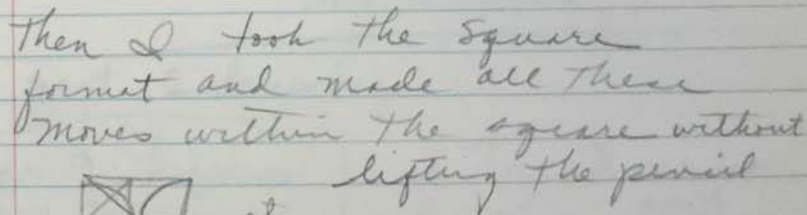 Then I took the Square
format and made all these
moves within the square without
lifting the pencil